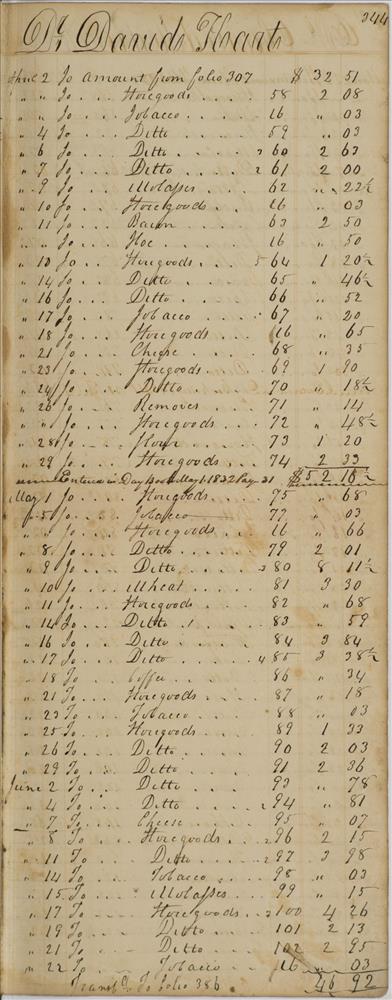 344
Dr. David Hart
April 2 To amount from folio 307 $ 32 51
" " To .... Storegoods .... 58 2 08
" " To .... Tobacco .... 16 " 03
" 4 To .... Ditto .... 59 " 03
" 6 To .... Ditto .... 60 2 63
" 7 To .... Ditto .... 61 2 00
" 9 To .... Molasses .... 62 " 22½
" 10 To .... Storegoods .... 16 " 03
" 11 To .... Bacon .... 63 2 50
" " To .... Hoe .... 16 " 50
" 13 To .... Storegoods .... 64 1 20½
" 14 To .... Ditto .... 65 " 46½
" 16 To .... Ditto .... 66 " 52
" 17 To .... Tobacco .... 67 " 20
" 18 To .... Storegoods .... 16 " 65
" 21 To .... Cheese .... 68 " 35
" 23 To .... Storegoods .... 69 1 90
" 24 To .... Ditto .... 70 " 18½
" 26 To .... Removes .... 71 " 14
" " To .... Storegoods .... 72 " 48½
" 28 To .... flour .... 73 1 20
" 29 To .... Storegoods .... 74 2 33
Entered in Day Book May 1. 1832 Page 31 $52 16½
May 1 To .... Storegoods .... 75 " 68
" 5 To .... Tobacco .... 77 " 03
" " To .... Storegoods .... 16 " 66
" 8 To .... Ditto .... 79 2 01
" 9 To .... Ditto .... 80 8 11½
" 10 To .... Wheat .... 81 3 30
" 11 To .... Storegoods .... 82 " 68
" 14 To .... Ditto .... 83 " 59
" 16 To .... Ditto .... 84 3 84
" 17 To .... Ditto .... 85 3 38½
" 18 To .... Coffee .... 86 " 34
" 21 To .... Storegoods .... 87 " 18
" 23 To .... Tobacco .... 88 " 03
" 25 To .... Storegoods .... 89 1 33
" 26 To .... Ditto .... 90 2 03
" 29 To .... Ditto .... 91 2 36
June 2 To .... Ditto .... 93 " 78
" 4 To .... Ditto .... 94 " 81
" 7 To .... Cheese .... 95 " 07
" 8 To .... Storegoods .... 96 2 15
" 11 To .... Ditto .... 97 3 98
" 14 To .... Tobacco .... 98 " 03
" 15 To .... Molasses .... 99 " 15
" 17 To .... Storegoods .... 100 4 26
" 19 To .... Ditto .... 101 2 13
" 21 To .... Ditto .... 102 2 95
" 22 To .... Tobacco .... 16 " 03
Transfd. To folio 386. 46 92